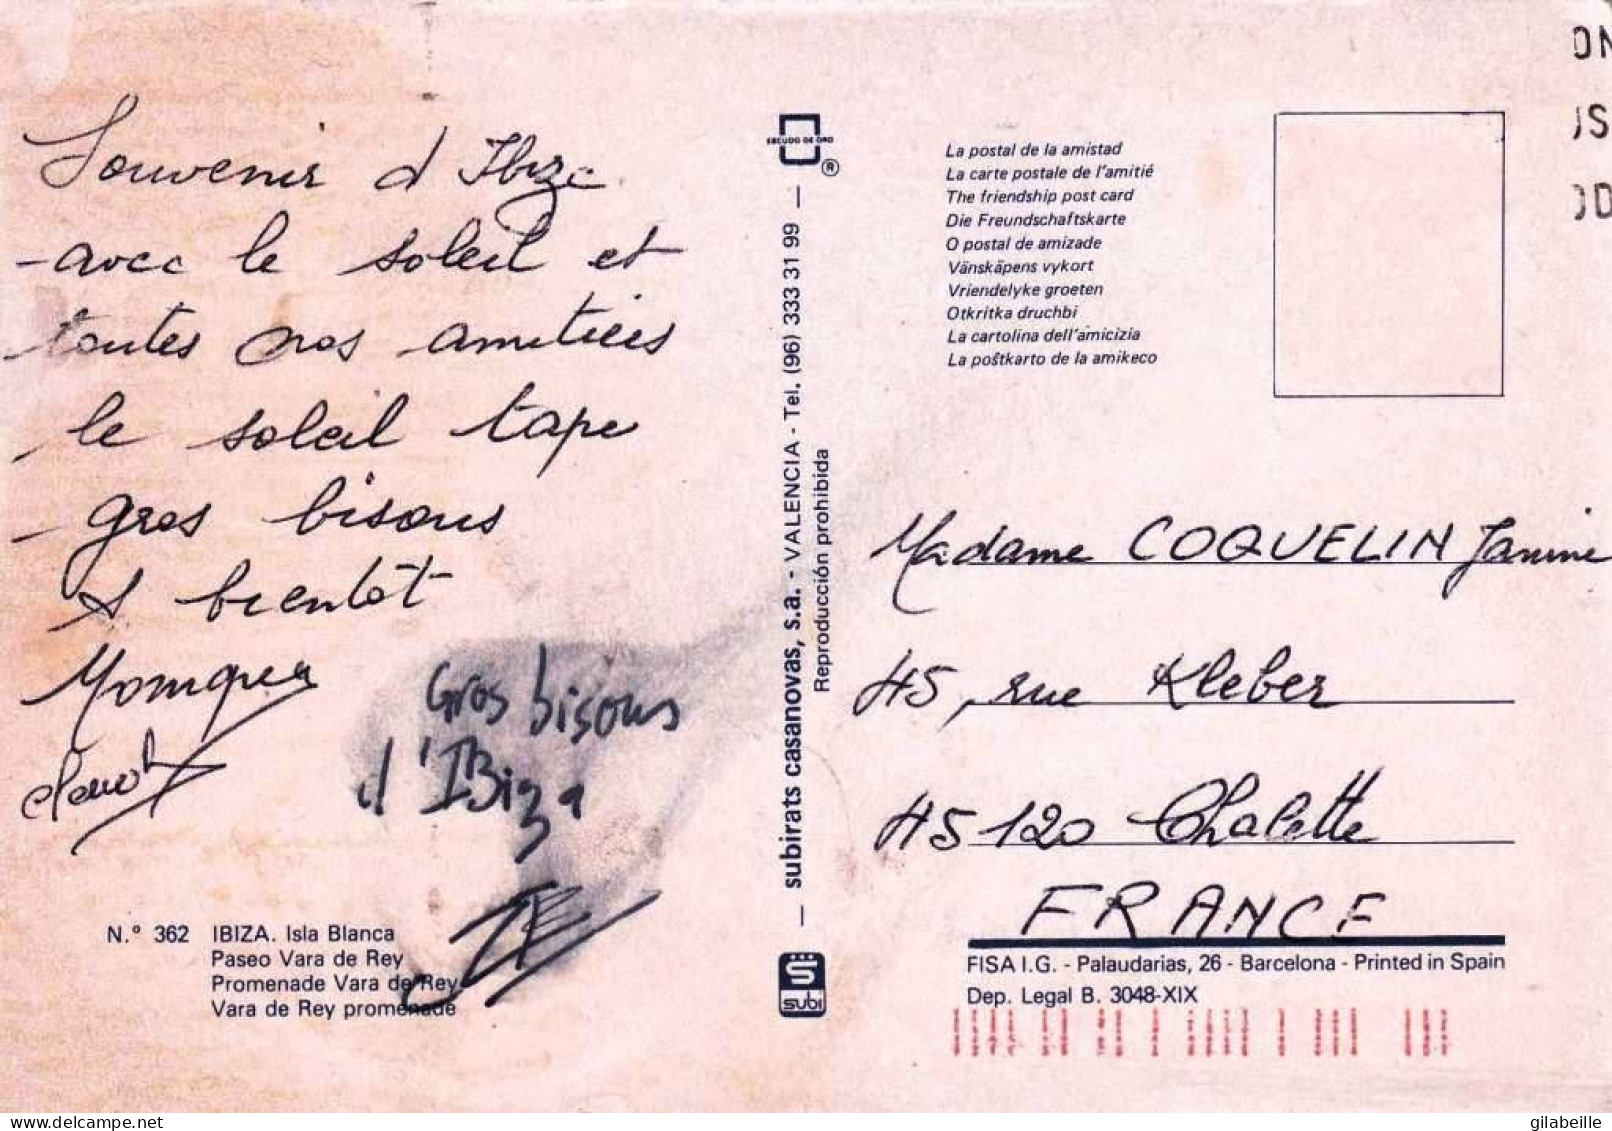 Souvenir d Ibiza
-avec le soleil et
toutes nos amitiées
le soleil tape
gros bisous
A bientot
Gros bisous
d'IBiza
N.º 362 IBIZA. Isla Blanca
Paseo Vara de Rey
Promenade Vara de Rey
Vara de Rey promenade
ESCUDO DE ORO
®
— subirats casanovas, s.a. - VALENCIA - Tel. (96) 333 31 99 —
Reproducción prohibida
subi
La postal de la amistad
La carte postale de l'amitié
The friendship post card
Die Freundschaftskarte
O postal de amizade
Vänskäpens vykort
Vriendelyke groeten
Otkritka druchbi
La cartolina dell'amicizia
La poŝtkarto de la amikeco
Madame COQUELIN Janine
45, rue Kleber
45120 Chalette
FRANCE
FISA I.G. - Palaudarias, 26 - Barcelona - Printed in Spain
Dep. Legal B. 3048-XIX
delcampe.net
gilabeille